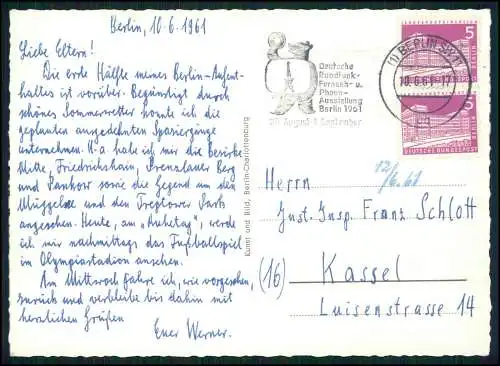 Berlin, 10.6.1961
Liebe Eltern!
Die erste Hälfte meines Berlin-Aufent-
haltes ist vorüber. Begünstigt durch
schönes Sommerwetter konnte ich die
geplanten ausgedehnten Spaziergänge
unternehmen. U.a. habe ich mir die Bezirke
Mitte, Friedrichshain, Prenzlauer Berg
und Pankow sowie die Gegend um den
Müggelsee und den Treptower Park
angesehen. Heute, am „Ruhetag", werde
ich mir nachmittags das Fußballspiel
im Olympiastadion ansehen.
Am Mittwoch fahre ich, wie vorgesehen,
zurück und verbleibe bis dahin mit
herzlichen Grüßen
Euer Werner.
Kunst und Bild, Berlin-Charlottenburg
Deutsche
Rundfunk-
Fernseh- u.
Phono-
Ausstellung
Berlin 1961
September
(1) BERLIN SW 11
10.6.61-17
5
DEUTSCHE BUNDESPOST BERLIN
5
DEUTSCHE BUNDESPOST BERLIN
12/6.61
Herrn
Just. Insp. Franz Schlott
(16) Kassel
Luisenstrasse 14